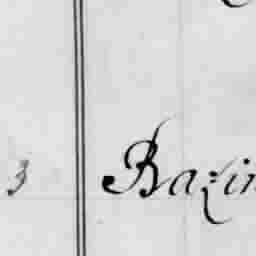 3 Bazin